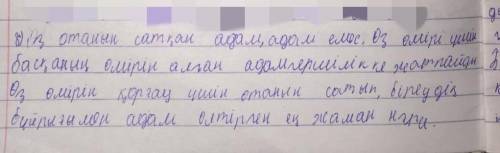 Өз отанын сатқан адам, адам емес. Өз өмірі үшін
басқаның өмірін алған адамгершілікке жатпайды
Өз өмірін қорғау үшін отанын сатып, біреудің
бұйрығымен адам өлтірген ең жаман